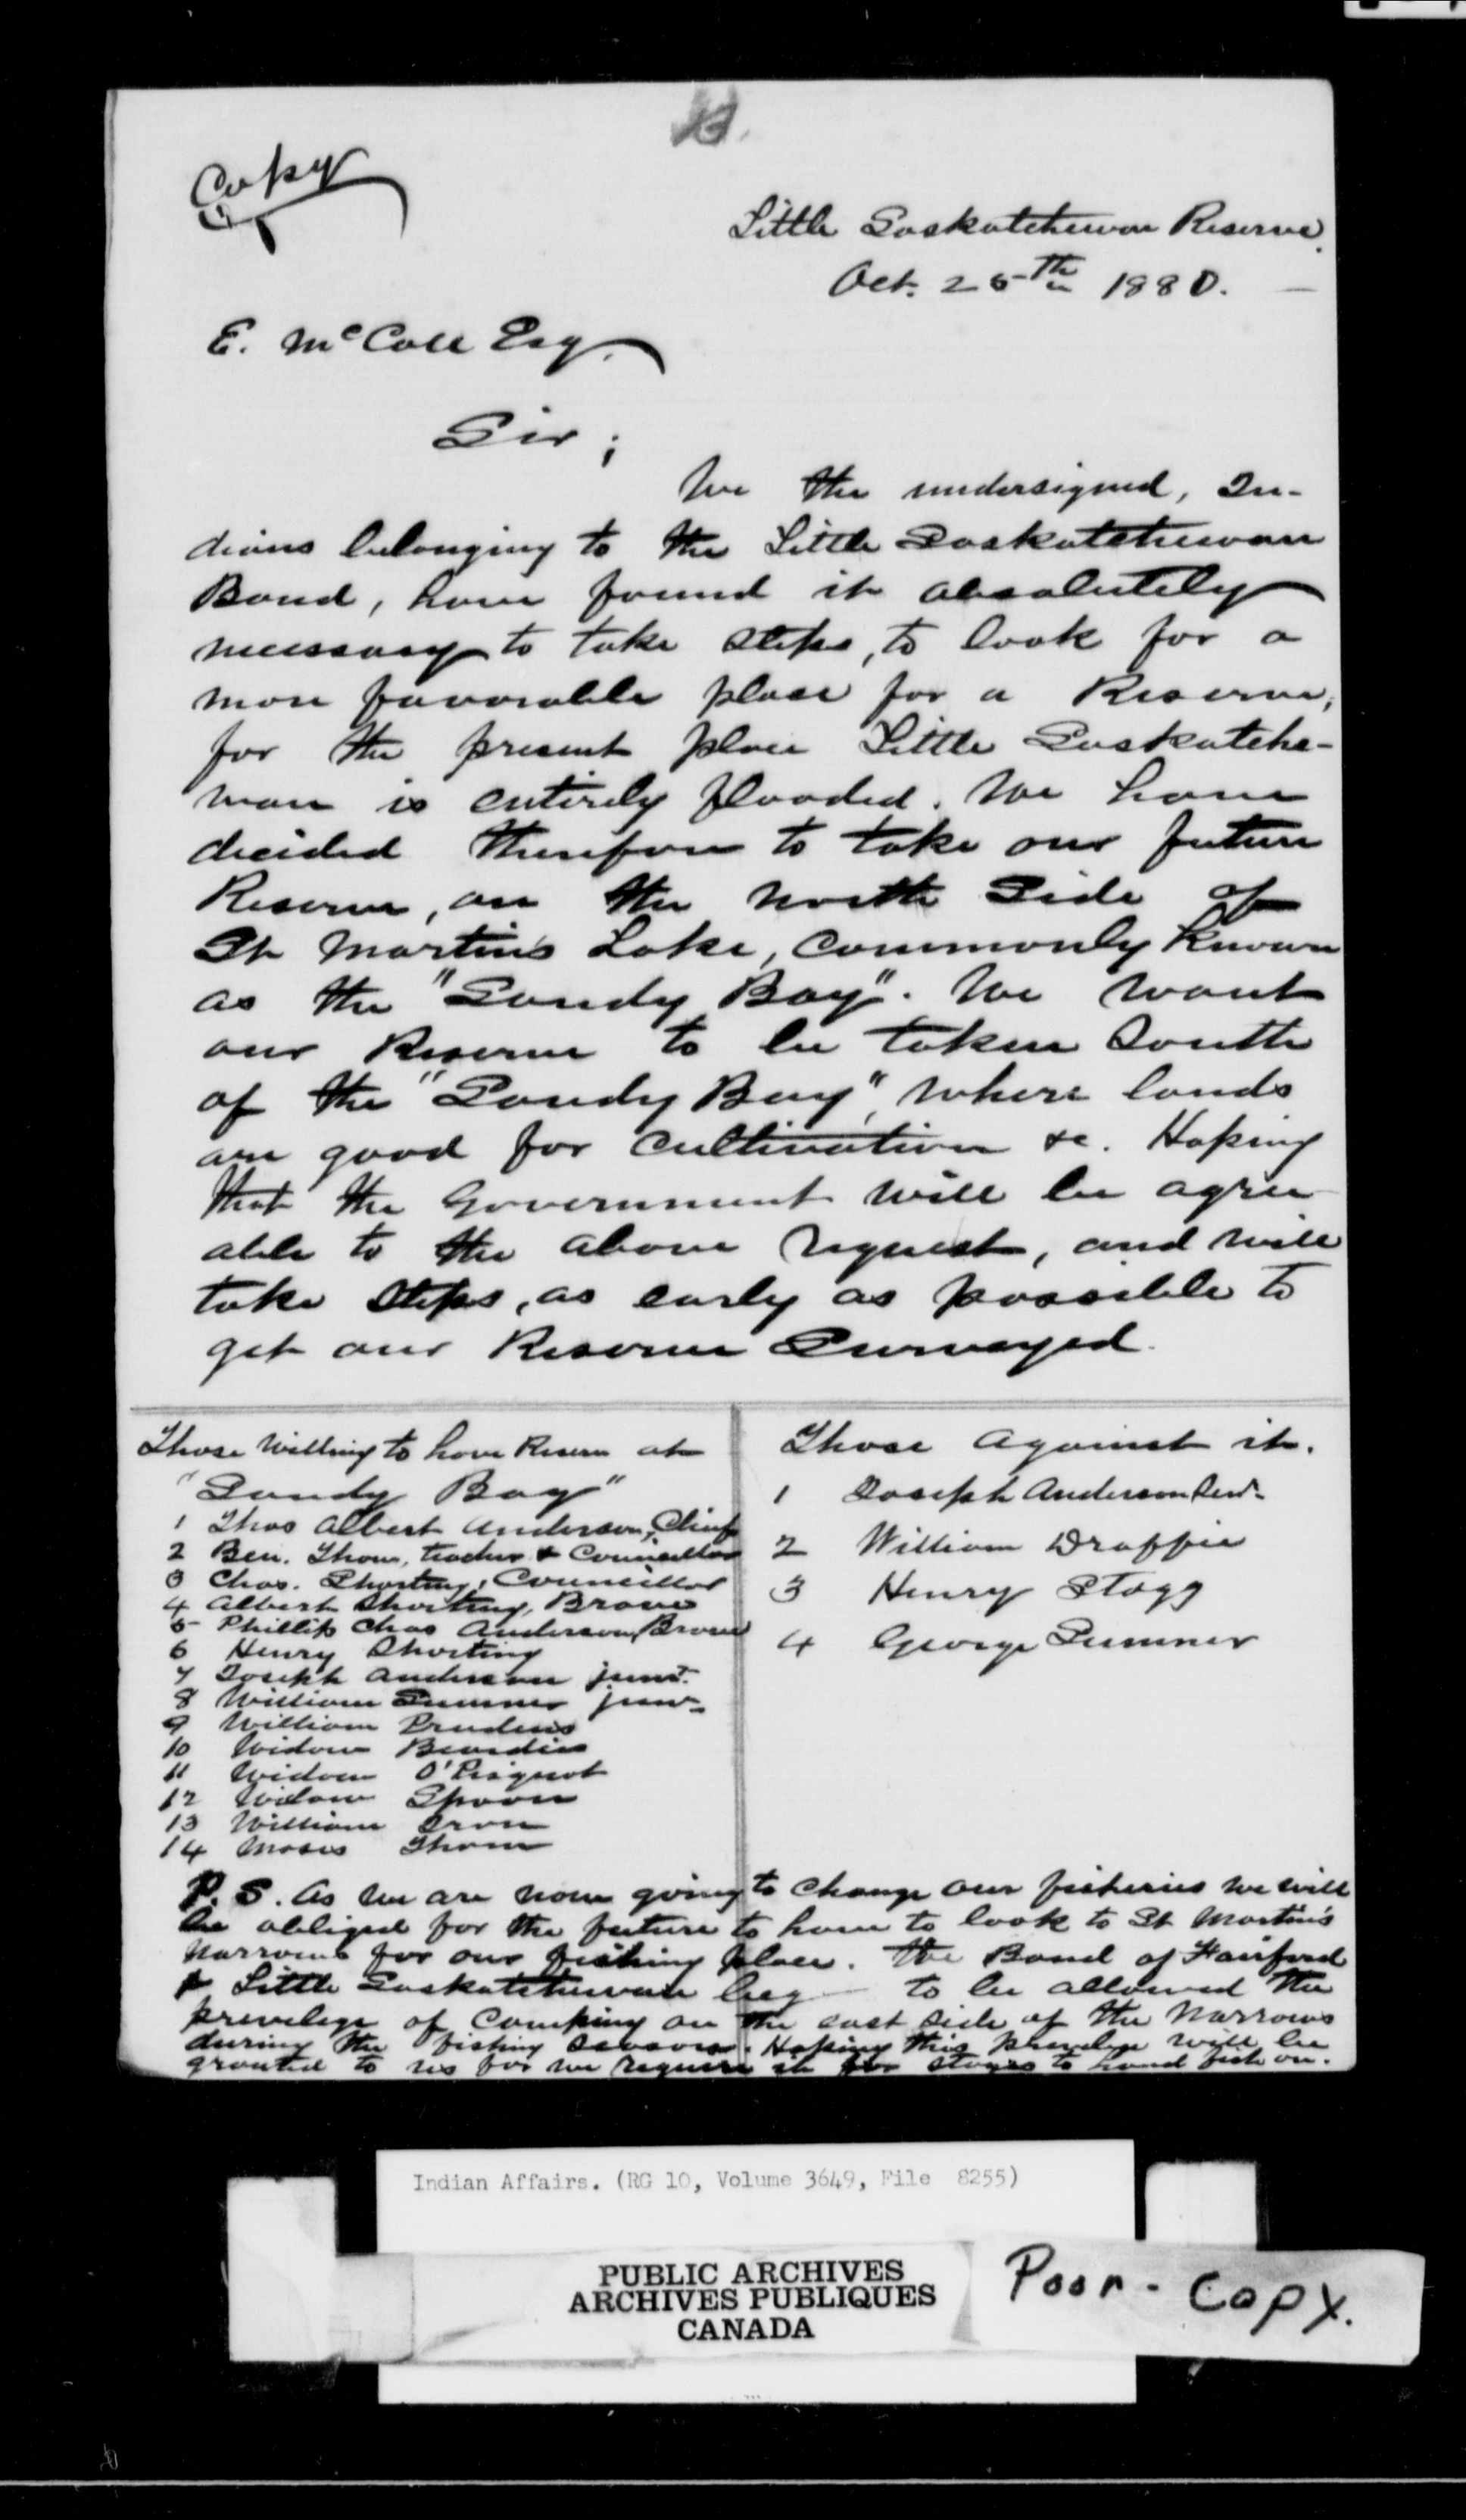 B.
Copy
Little Saskatchewan Reserve
Oct. 25th 1880.
E. McColl Esq.
Sir;
We the undersigned, In-
dians belonging to the Little Saskatchewan
Band, have found it absolutely
necessary to take steps, to look for a
more favorable place for a Reserve,
for the present place Little Saskatche-
wan is entirely flooded. We have
decided therefore to take our future
Reserve, on the North Side of
St Martin's Lake, commonly known
as the "Sandy Bay". We want
our Reserve to be taken South
of the "Sandy Bay", where lands
are good for cultivation &c. Hoping
that the Government will be agree
able to the above request, and will
take steps, as early as possible to
get our Reserve Surveyed.
Those Willing to have Reserve at
"Sandy Bay"
1 Thos Albert Anderson, Chief
2 Ben. Thom, teacher & Councillor
3 Chas. Shorting, Councillor
4 Albert Shorting, Brave
5 Phillip Chas Anderson, Brave
6 Henry Shorting
7 Joseph Anderson junr.
8 William Sumner junr
9 William Prudens
10 Widow Beardie
11 Widow
12 Widow Spoon
13 William
14 Moses Thom
Those against it.
1 Joseph Anderson Senr.
2 William Draffie
3 Henry Stagg
4 George Sumner
P. S. As we are now going to change our fisheries we will
be obliged for the future to have to look to St Martin's
Narrows for our fishing place. The Band of Fairford
& Little Saskatchewan beg — to be allowed the
prevelege of camping on the east side of the Narrows
during the fishing season. Hoping this prevelege will be
granted to us for we require it for stages to hand fish on.
Indian Affairs. (RG 10, Volume 3649, File 8255)
PUBLIC ARCHIVES
ARCHIVES PUBLIQUES
CANADA
Poor - Copy.